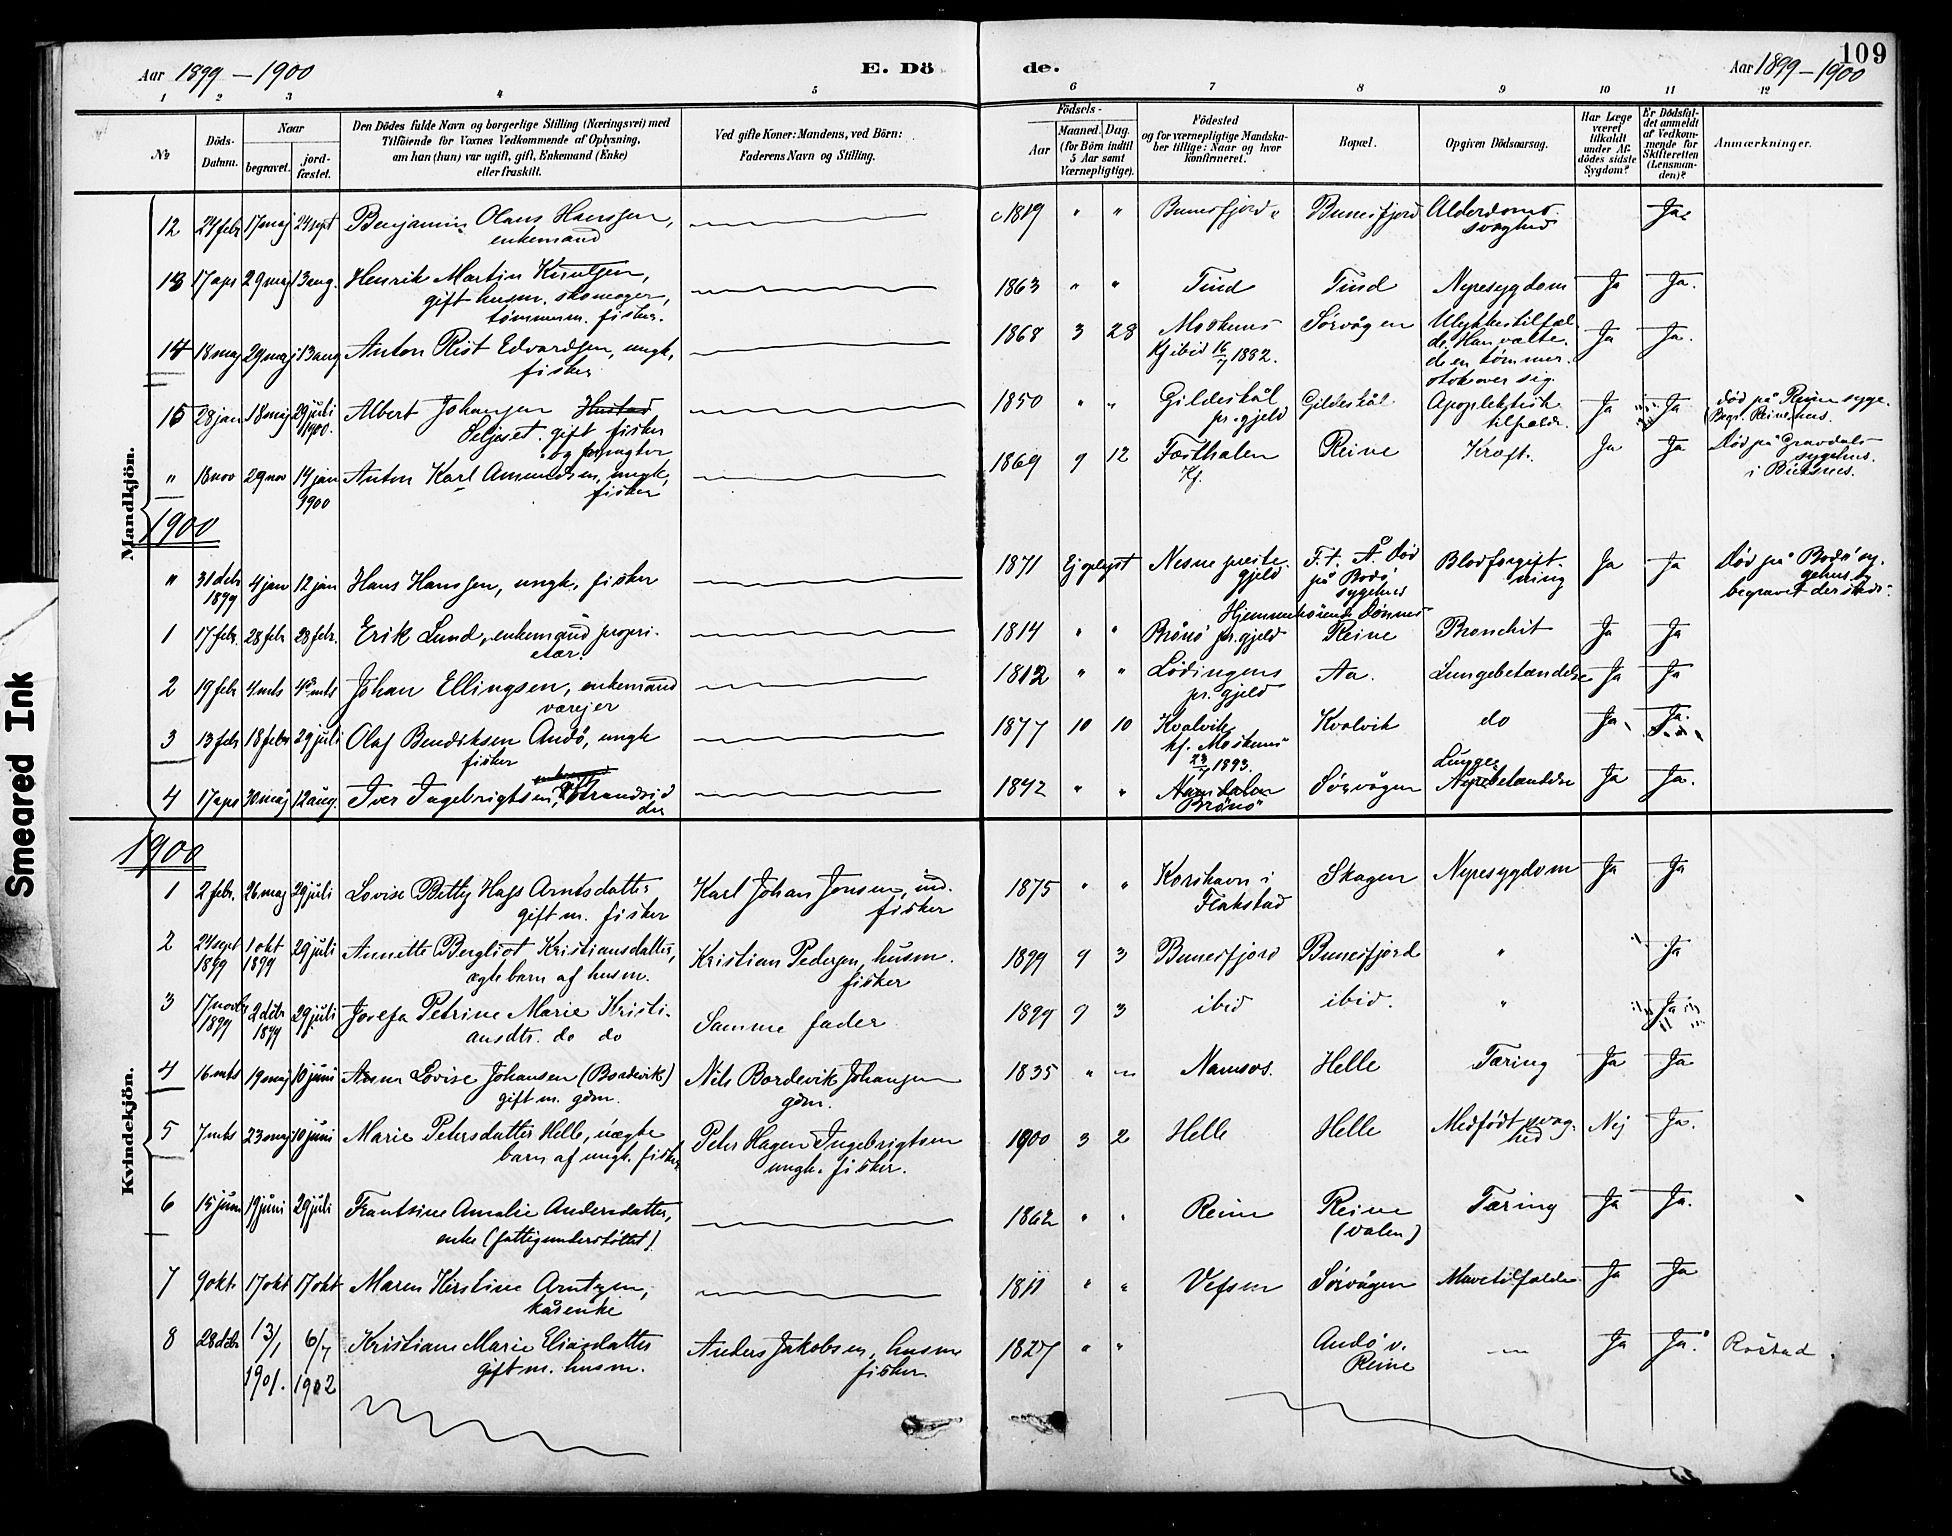 Aar 1899 – 1900
E. Dö
de.
109
Aar 1899 – 1900
1 2 3 4 5 6 7 8 9 10 11 12
No
Döds-Datum.
Naar
begravet.
jord-fæstet.
Den Dödes fulde Navn og borgerlige Stilling (Næringsvei) med
Tilföiende for Voxnes Vedkommende af Oplysning,
om han (hun) var ugift, gift, Enkemand (Enke)
eller fraskilt.
Ved gifte Koner: Mandens, ved Börn:
Faderens Navn og Stilling.
Födsels-
Aar
Maaned. Dag.
(for Börn indtil
5 Aar samt
Værnepligtige).
Födested
og for værnepligtige Mandska-
ber tillige: Naar og hvor
konfirmeret.
Bopæl.
Opgiven Dödsaarsag.
Har Læge
været
tilkaldt
under Af-
dödes sidste
Sygdom?
Er Dödsfal-
det anmeldt
af Vedkom-
mende for
Skifteretten
(Lensman-
den)?
Anmærkninger.
Mandkjön.
12 24 febr 17 maj 24 sept Benjamin Olaus Hanssen, c 1819 " " Bunesfjord Bunesfjord Alderdoms- Ja
enkemand svaghed
13 17 apr 29 maj 13 aug. Henrik Martin Knutsen, 1863 " " Tind Tind Nyresygdom Ja Ja.
gift husm. skomager,
tømmerm. fisker.
14 18 maj 29 maj 13 aug Anton Rist Edvardsen, ungk. 1868 3 28 Moskenes Sørvågen Ulykkestilfæl- Ja Ja.
fisker Kf ibid 16/7 1882. de. Han vælte-
de en tømmer-
stok over sig.
15 28 jan 18 maj 29 juli Albert Johansen Hustad 1850 " " Gildeskål Gildeskål Apoplektisk Ja Ja død på Reine syge-
1900. Seljeset. gift fisker pr.gjeld tilfælde. Begr. Reine hus.
og forpagter
" 18 nov 29 nov 14 jan Anton Karl Amundsen, ungk. 1869 9 12 Festhalen Reine Kræft. Ja Ja Død på Gravdals
1900 fisker Kf. sygehus.
i Buksnes.
1900
" 31 debr 4 jan 12 jan Hans Hanssen, ungk. fisker 1871 Ej oplyst Nesne præste- F. t. Å død Blodforgift- Ja Ja Død på Bodø sy-
1899 gjeld på Bodø ning gehus og
sygehus begravet dersteds.
Hjemmehørende Dønnes
1 17 febr. 28 febr 28 febr. Erik Lund, enkemand propri- 1814 " " Brønø pr.gjeld Reine Bronchit Ja Ja
etær.
2 19 febr 4 mts 4 mts Johan Ellingsen, enkemand 1812 " " Lødingens Aa. Lungebetændelse Ja Ja
værejer pr. gjeld
3 13 febr 18 febr 29 juli Olaf Bendiksen Andø, ungk 1877 10 10 Kvalvik Kvalvik do Ja Ja.
fisker kf. Moskenes
23/7 1893.
4 17 apr 30 maj 12 aug. Iver Ingebrigtsen, strandsid 1842 " " Namdalen Sørvågen Nyrebetændelse Ja Ja.
der Brønø Lunge
Kvindekjön.
1900
1 2 febr. 26 maj 29 juli Lovise Betty Hajs Arntsdatter Karl Johan Jensen, ind. 1875 " " Korshavn i Skagen Nyresygdom Ja Ja
gift m. fisker fisker Flakstad
2 24 sept 1 okt 29 juli Annette Bergliot Kristiansdatter, Kristian Pedersen, husm. 1899 9 3 Bunesfjord Bunesfjord " Ja
1899 1899 ægte barn af husm. fisker
3 17 novbr 2 debr 29 juli Josefa Petrine Marie Kristi- Samme fader 1899 9 3 ibid ibid. " Ja
1899 1899 ansdtr. do do
4 16 mts 19 maj 10 juni Anne Lovise Johansen (Bordevik) Nils Bordevik Johansen 1835 " " Namsos. Helle Tæring Ja Ja
gift m. gdm. gdm.
5 7 mts 23 maj 10 juni Marie Petersdatter Helle, uægte Peter Hagen Ingebrigtsen 1900 3 2 Helle Helle Medfødt svag- Nej Ja.
barn af ungk. fisker ungk. fisker. hed
6 15 juni 19 juni 29 juli Frantsine Amalie Andersdatter, 1862 " " Reine Reine Tæring Ja Ja.
enke (fattigunderstøttet). (Valen)
7 9 okt. 17 okt 17 okt Maren Kirstine Arntzen, 1811 " " Vefsen Sørvågen Mavetilfælde Ja Ja
kårenke
8 28 debr 13/1 6/7 Kristiane Marie Eliasdatter Anders Jakobsen, husm 1827 " " Andø v. Ja Ja. Røstad.
1901. 1902 gift m. husm. fisker Reine
Smeared Ink